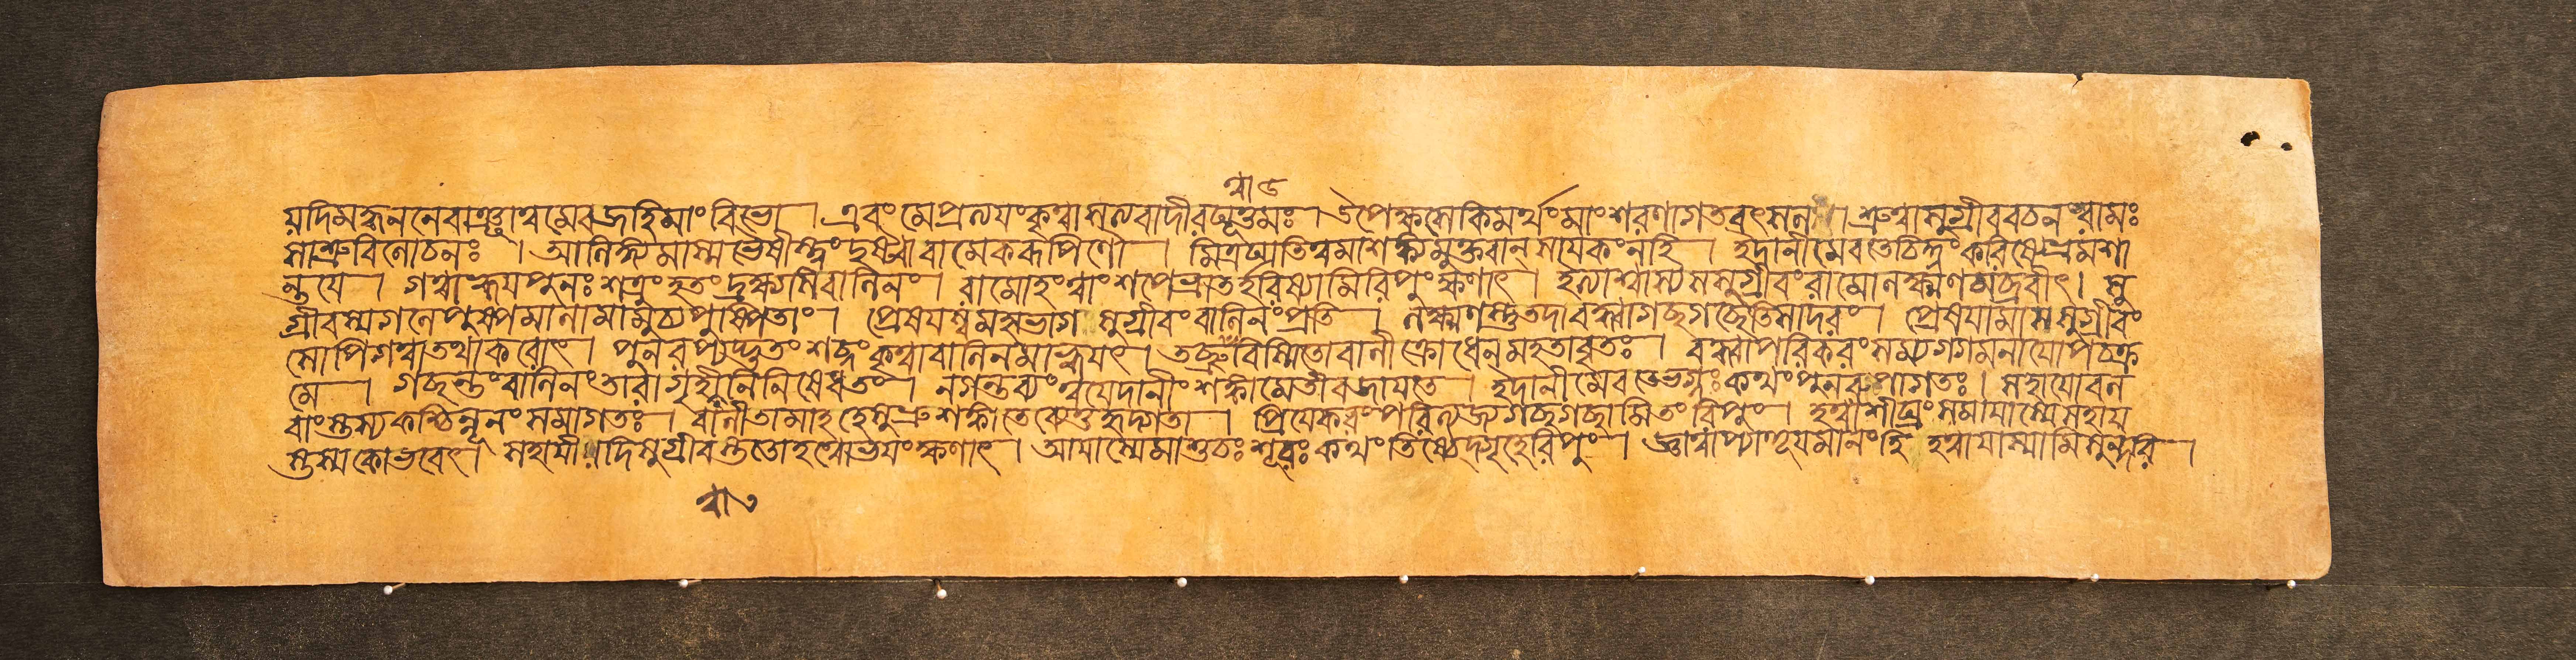 ত্বা ৫
যদিমদ্ধননেবাঞ্ছাত্বমেবজহিমাংবিভো । এবংমেপ্রত্যয়ংকৃত্বাসত্যবাদীরঘূত্তমঃ । উপেক্ষসেকিমর্থংমাংশরণাগতবৎসল । শ্রুত্বাসুগ্রীববচনংরামঃ
সাশ্রুবিলোচনঃ । আলিঙ্গ্যমাস্মভৈষীস্ত্বংদৃষ্ট্বাবামেকরূপিণৌ । মিত্রঘাতিত্বমাশঙ্ক্যমুক্তবানসায়কংনহি । ইদানীমেবতেচিহ্নংকরিষ্যেভ্রমশা
ন্তয়ে । গত্বাহ্বয়পুনঃশত্রুংহতংদ্রক্ষ্যসিবালিনং । রামোহংত্বাংশপেভ্রাতর্হনিষ্যামিরিপুংক্ষণাৎ । ইত্যাশ্বাস্যসসুগ্রীবংরামোলক্ষ্মণমব্রবীৎ । সু
গ্রীবস্যগলেপুষ্পমালামামুচ্যপুষ্পিতাং । প্রেষয়স্বমহাভাগ সুগ্রীবংবালিনংপ্রতি । লক্ষ্মণস্তুতদাবদ্ধ্বাগচ্ছগচ্ছেতিসাদরং । প্রেষয়ামাসসুগ্রীবং
সোপিগত্বাতথাকরোৎ । পুনরপ্যদ্ভুতংশব্দংকৃত্বাবালিনমাহ্বয়ৎ । তচ্ছ্রুত্বাবিস্মিতোবালীক্রোধেনমহতাবৃতঃ । বদ্ধ্বাপরিকরংসম্যগ্গমনায়োপচক্র
মে । গচ্ছন্তংবালিনংতারাগৃহীত্বানিষিষেধতং । নগন্তব্যংত্বয়েদানীংশঙ্কামেতীবজায়তে । ইদানীমেবতেভগ্নঃকথংপুনরুপাগতঃ । সহায়োবল
বাংস্তস্যকশ্চিন্নূনংসমাগতঃ । বালীতামাহহেসুভ্রুশঙ্কাতেব্যেতুতদ্গতা । প্রিয়েকরংপরিত্যজ্যগচ্ছগচ্ছামিতংরিপুং । হত্বাশীঘ্রংসমায়াস্যেসহায়
স্তস্যকোভবেৎ । সহায়ী যদিসুগ্রীবস্ততোহত্বোভয়ংক্ষণাৎ । আয়াস্যেমাশুচঃশূরঃকথংতিষ্ঠেদ্গৃহেরিপুং । জ্ঞাত্বাপ্যাহূয়মানংহি হত্বায়াস্যামিসুন্দরি ।
ত্বা ৬